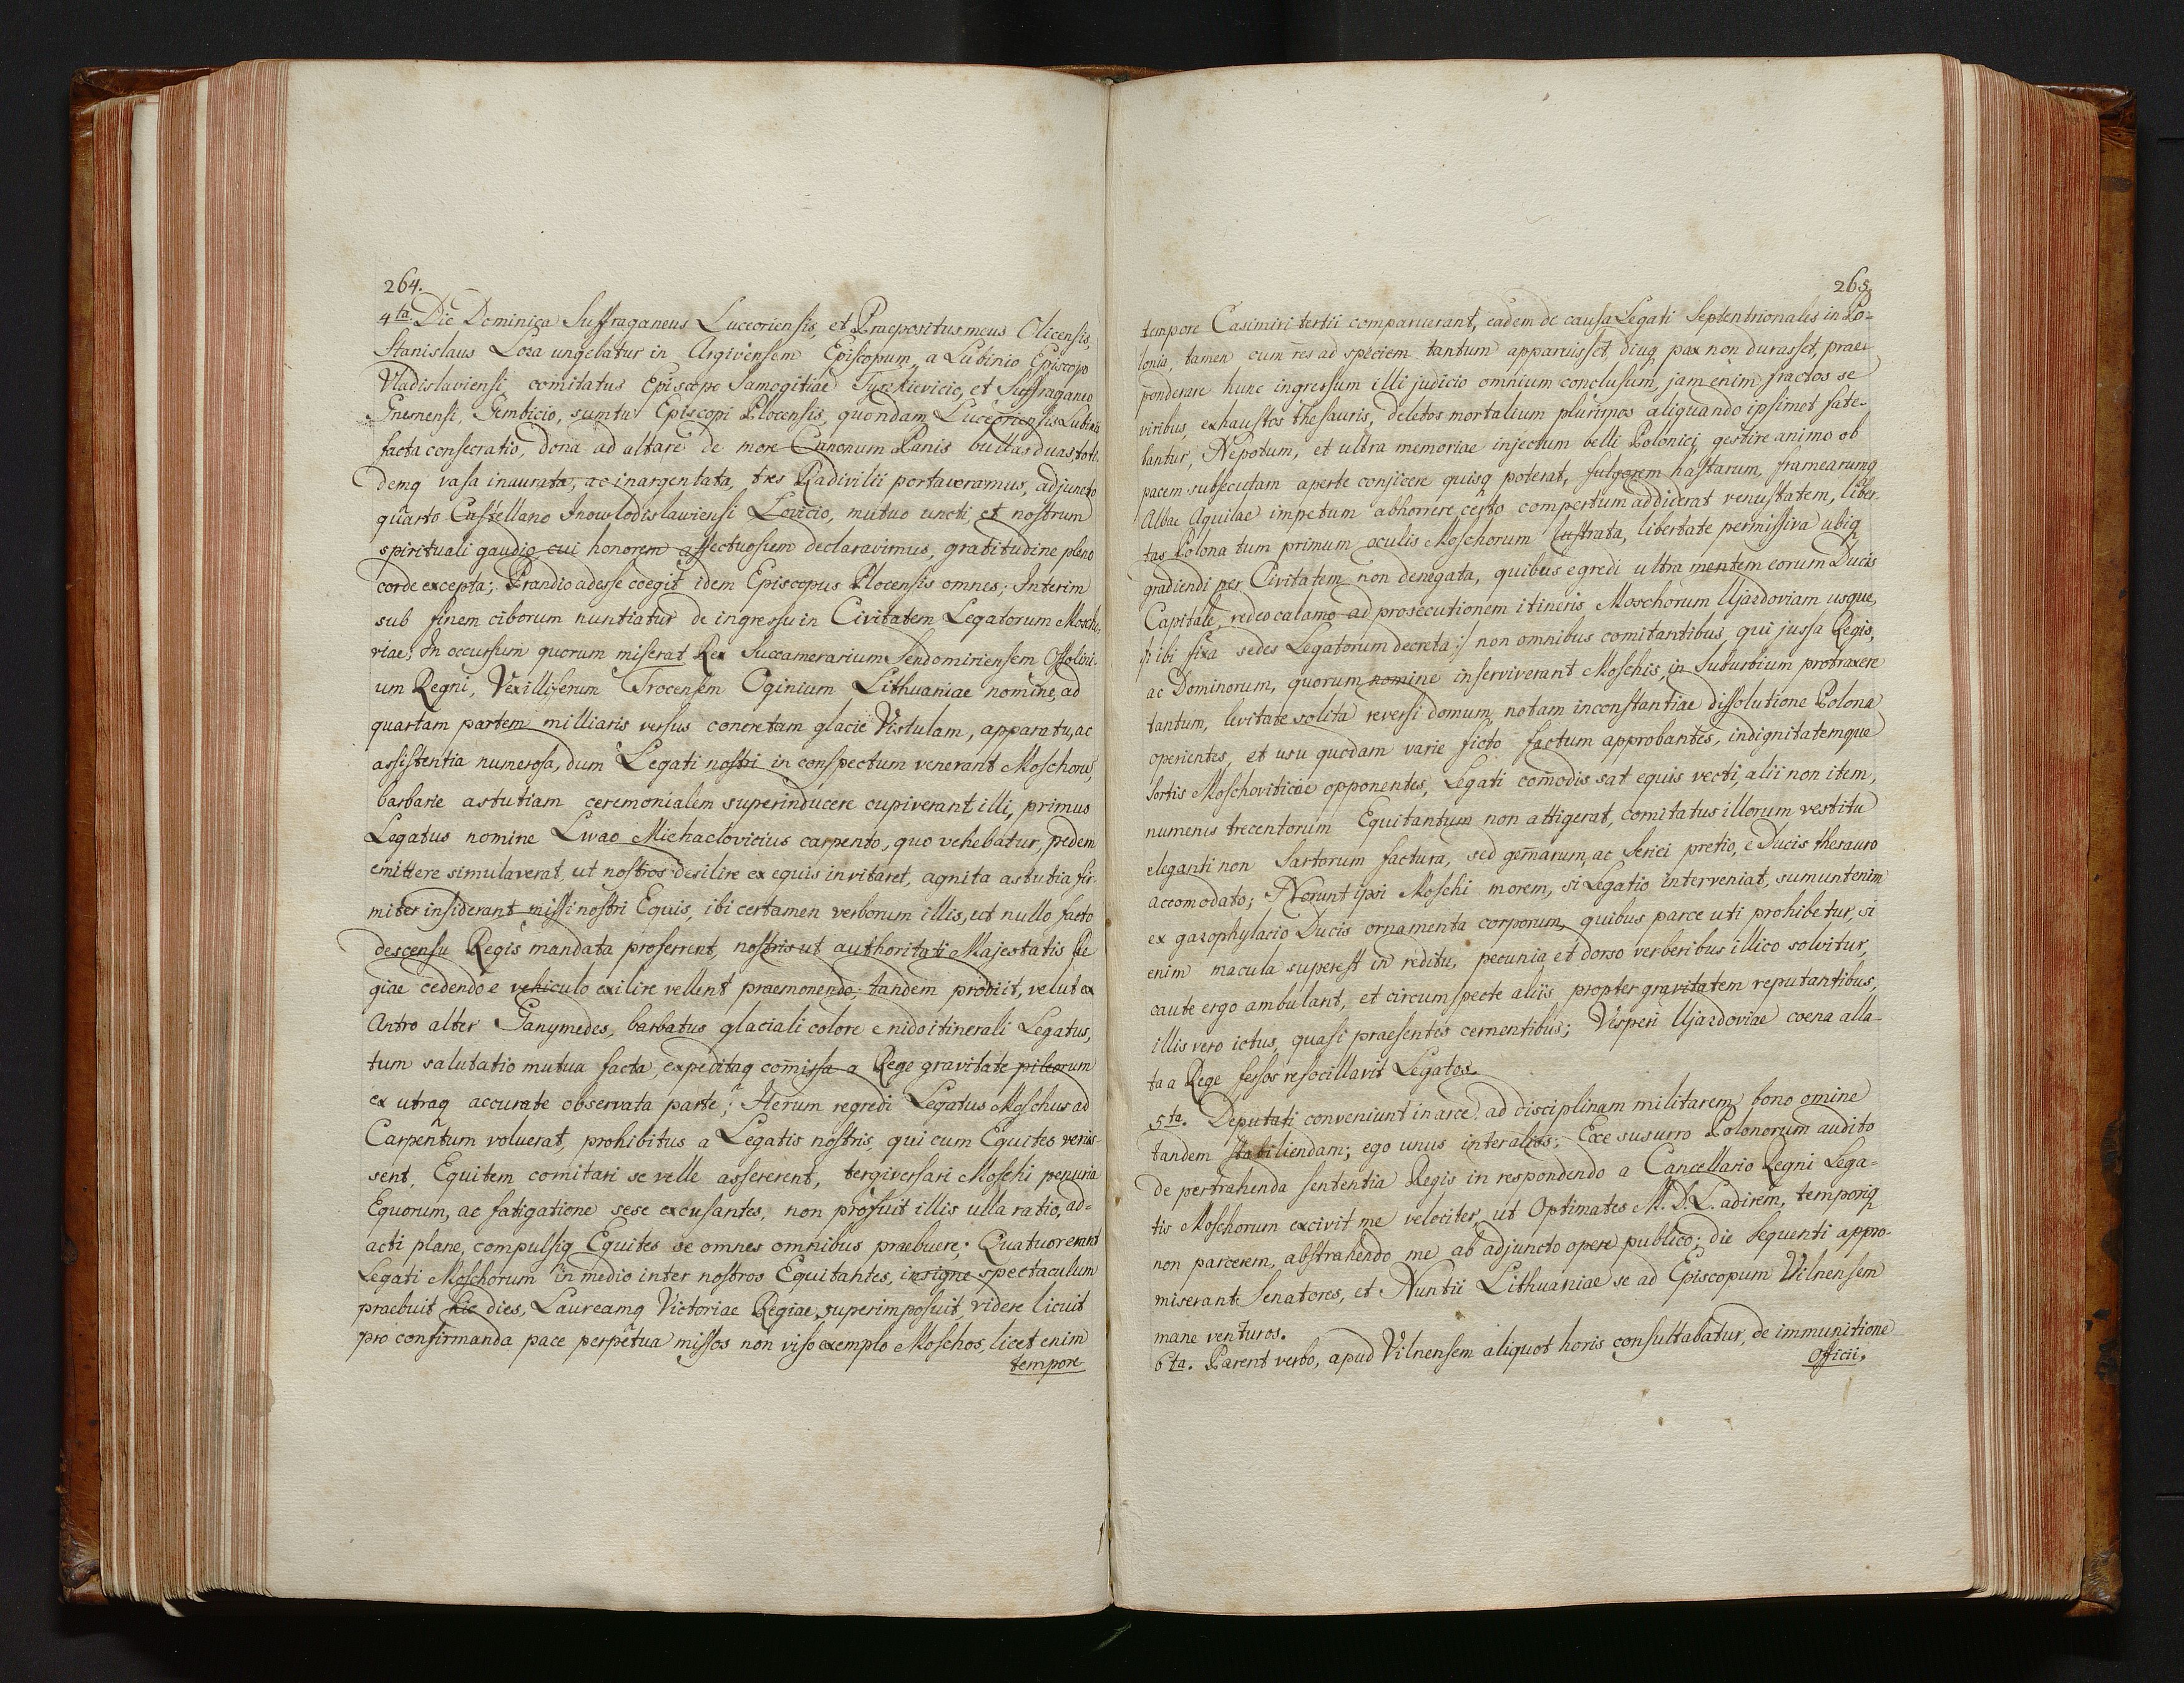 264.
4ta. Die Dominica Suffraganeus Luceoriensis, et Praepositus meus Olicensis,
Stanislaus Loza ungebatur in Argivensem Episcopum, a Lubinio Episcopo
Vladislaviensi comitatus Episcopo Samogitiae Tyszkievicio, et Suffraganeo
Gnesnensi, Gembicio, sumtu Episcopi Plocensis, quondam Luceoriensis Lubinii
facta consecratio, dona ad altare de more Canonum Panis bullas duas toti-
demq vasa inaurata, ac inargentata, tres Radivilii portaveramus, adjuncto
quarto Castellano Inowlodislawiensi Lovicio, mutuo uncti et nostrum
spirituali gaudio cui honorem affectuosum declaravimus, gratitudine pleno
corde excepta; Prandio adesse coegit idem Episcopus Plocensis omnes; Interim
sub finem ciborum nuntiatur de ingressu in Civitatem Legatorum Moscho-
viae; In occursum quorum miserat Rex Succamerarium Sendomiriensem Ossolini-
um Regni, Vexilliferum Trocensem Oginium Lithuaniae nomine, ad
quartam partem milliaris versus concretam glacie Vistulam, apparatu, ac
assistentia numerosa, dum Legati nostri in conspectum venerant Moschorũ,
barbarie astutiam ceremonialem superinducere cupiverant illi, primus
Legatus nomine Lwao Michaelovicius carpento, quo vehebatur, pedem
emittere simulaverat, ut nostros desilire ex equis invitaret, agnita astutia fir-
miter insiderant missi nostri Equis, ibi certamen verborum illis, ut nullo facto
descensu Regis mandata proferrent, nostris ut authoritati Majestatis Re
giae cedendo e vehiculo exilire vellent praemonendo; tandem prodiit, velut ex
Antro alter Ganymedes, barbatus glaciali colore e nido itinerali Legatus,
tum salutatio mutua facta, expeditaq com̃issa a Rege gravitate pileorum
ex utraq accurate observata parte; Iterum regredi Legatus Moschus ad
Carpentum voluerat, prohibitus a Legatis nostris, qui cum Equites venis-
sent, Equitem comitari se velle assererent, tergiversari Moschi penuria
Equorum, ac fatigatione sese excusantes, non profuit illis ulla ratio, ad-
acti plane, compulsiq Equites se omnes omnibus praebuere; Quatuor erant
Legati Moschorum in medio inter nostros Equitantes, insigne spectaculum
praebuit hic dies, Laureamq Victoriae Regiae superimposuit, videre licuit
pro confirmanda pace perpetua missos non viso exemplo Moschos, licet enim
tempore
265.
tempore Casimiri tertii comparuerant, eadem de causa Legati Septentrionales in Po-
lonia, tamen cum res ad speciem tantum apparuisset, diuq pax non durasset, prae-
ponderare hunc ingressum illi judicio omnium conclusum, jam enim fractos se
viribus, exhaustos thesauris, deletos mortalium plurimos aliquando ipsimet fate-
bantur, Nepotum, et ultra memoriae injectum belli Polonici, gestire animo ob
pacem subsecutam aperte conjicere quisq poterat, fulgorem hastarum, framearumq
Albae Aquilae impetum abhorrere certo compertum addiderat venustatem, liber-
tas Polona tum primum oculis Moschorum lustrata, libertate permissiva ubiq
gradiendi per Civitatem non denegata, quibus egredi ultra mentem eorum Ducis
Capitale, redeo calamo ad prosecutionem itineris Moschorum Ujazdoviam usque,
/: ibi fixa sedes Legatorum decreta :/ non omnibus comitantibus, qui jussa Regis,
ac Dominorum, quorum nomine inserviverant Moschis, in Suburbium protraxere
tantum, levitate solita reversi domum, notam inconstantiae dissolutione Polona
operientes, et usu quodam varie ficto factum approbantes, indignitatemque
sortis Moschoviticae opponentes, Legati com̃odis sat equis vecti, alii non item,
numerus trecentorum Equitantum non attigerat, comitatus illorum vestitu
eleganti non Sartorum factura, sed gem̃arum, ac Serici pretio, e Ducis thesauro
accomodato; Norunt ipsi Moschi morem, si Legatio interveniat, sumunt enim
ex gazophylacio Ducis ornamenta corporum, quibus parce uti prohibetur, si
enim macula superest in reditu, pecunia et dorso verberibus illico solvitur,
caute ergo ambulant, et circumspecte aliis propter gravitatem reputantibus,
illis vero ictus, quasi praesentes cernentibus; Vesperi Ujazdoviae coena alla-
ta a Rege fessos resocillavit Legatos.
5ta. Deputati conveniunt in arce ad disciplinam militarem bono omine
tandem stabiliendam; ego unus inter alios; Ecce susurro Polonorum audito
de pertrahenda sententia Regis in respondendo a Cancellario Regni Lega-
tis Moschorum excivit me velociter, ut Optimates M. D. L. adirem, temporiq
non parcerem, abstrahendo me ab adjuncto opere publico; die sequenti appro-
miserant Senatores, et Nuntii Lithuaniae se ad Episcopum Vilnensem
mane venturos.
6ta. Parent verbo, apud Vilnensem aliquot horis consultabatur, de immunitione
Officii.